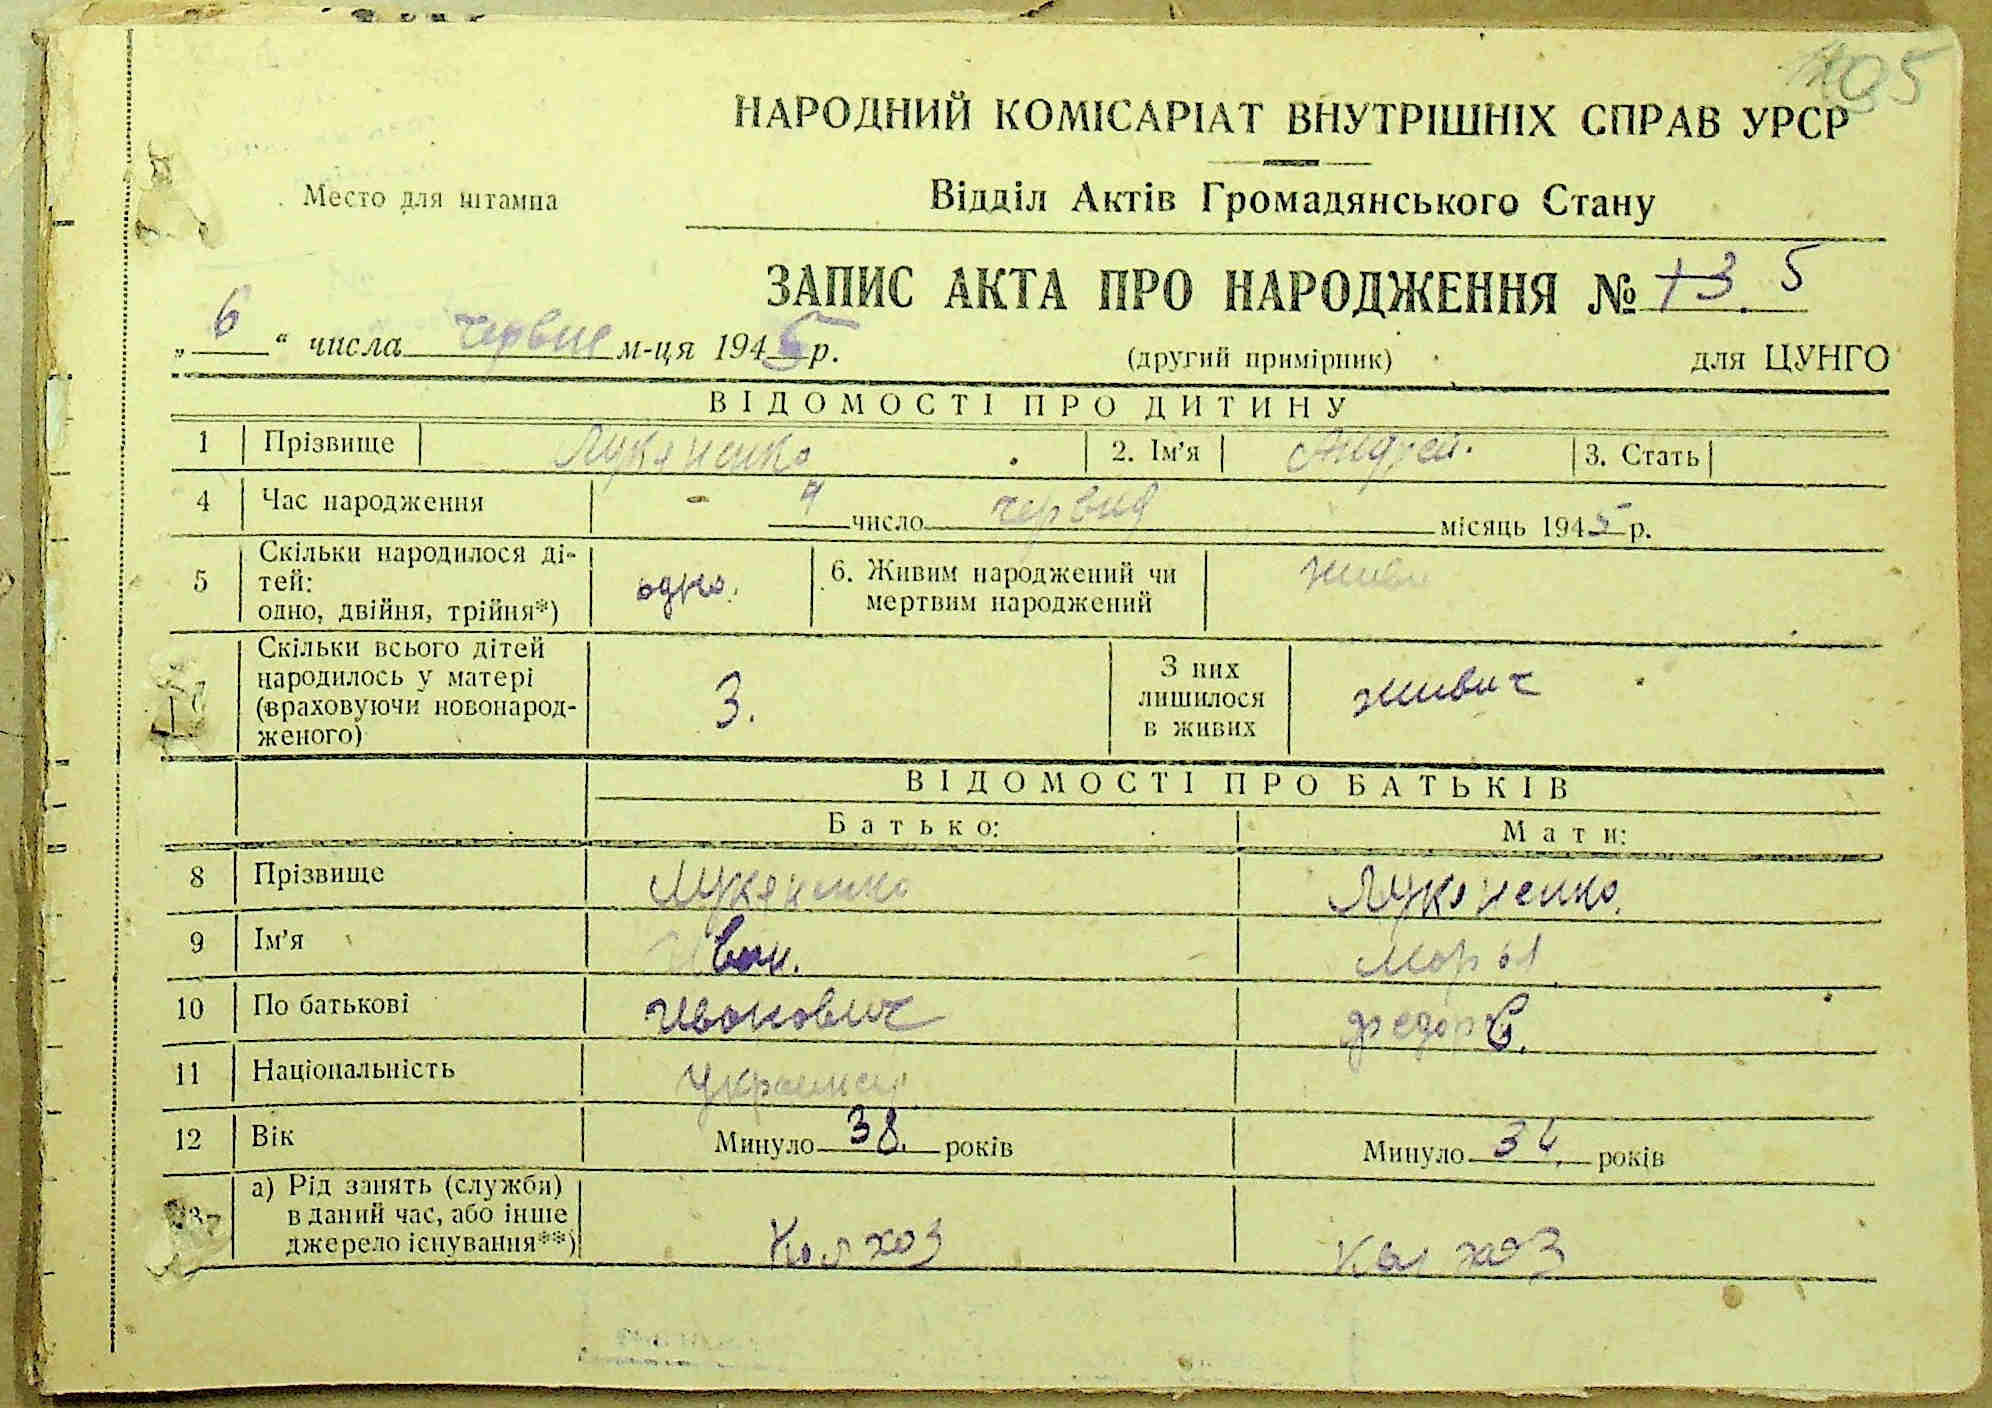 105
НАРОДНИЙ КОМІСАРІАТ ВНУТРІШНІХ СПРАВ УРСР
Место для штампа
Відділ Актів Громадянського Стану
ЗАПИС АКТА ПРО НАРОДЖЕННЯ № 5
„ 6 “ числа червня м-ця 1945 р. (другий примірник) для ЦУНГО
ВІДОМОСТІ ПРО ДИТИНУ
1 Прізвище Лукяненко 2. Ім'я Андрей. 3. Стать
4 Час народження 4 число червня місяць 1945 р.
5 Скільки народилося ді-
тей:
одно, двійня, трійня*) одно. 6. Живим народжений чи
мертвим народжений живи
Скільки всього дітей
народилось у матері
(враховуючи новонарод-
женого) 3. З них
лишилося
в живих живих
ВІДОМОСТІ ПРО БАТЬКІВ
Батько: Мати:
8 Прізвище Лукяненко Лукяненко.
9 Ім'я Иван. Марья
10 По батькові Иванович Федор
11 Національність
12 Вік Минуло 38. років Минуло 34. років
13 а) Рід занять (служби)
в даний час, або інше
джерело існування**) Колхоз Колхоз